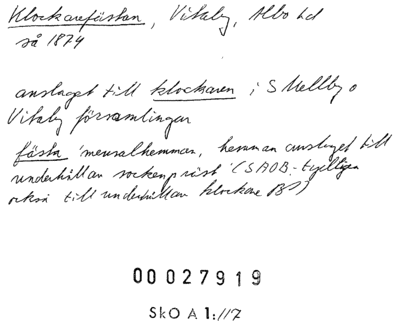 Klockarefästan, Vitaby, Albo hd
så 1874
anslaget till klockaren i S Mellby o
Vitaby församlingar
fästa 'mensalhemman, hemman anslaget till
underhåll av sockenpräst' (SAOB. tydligen
också till underhåll av klockare BP)
00027919
SkO A 1:117